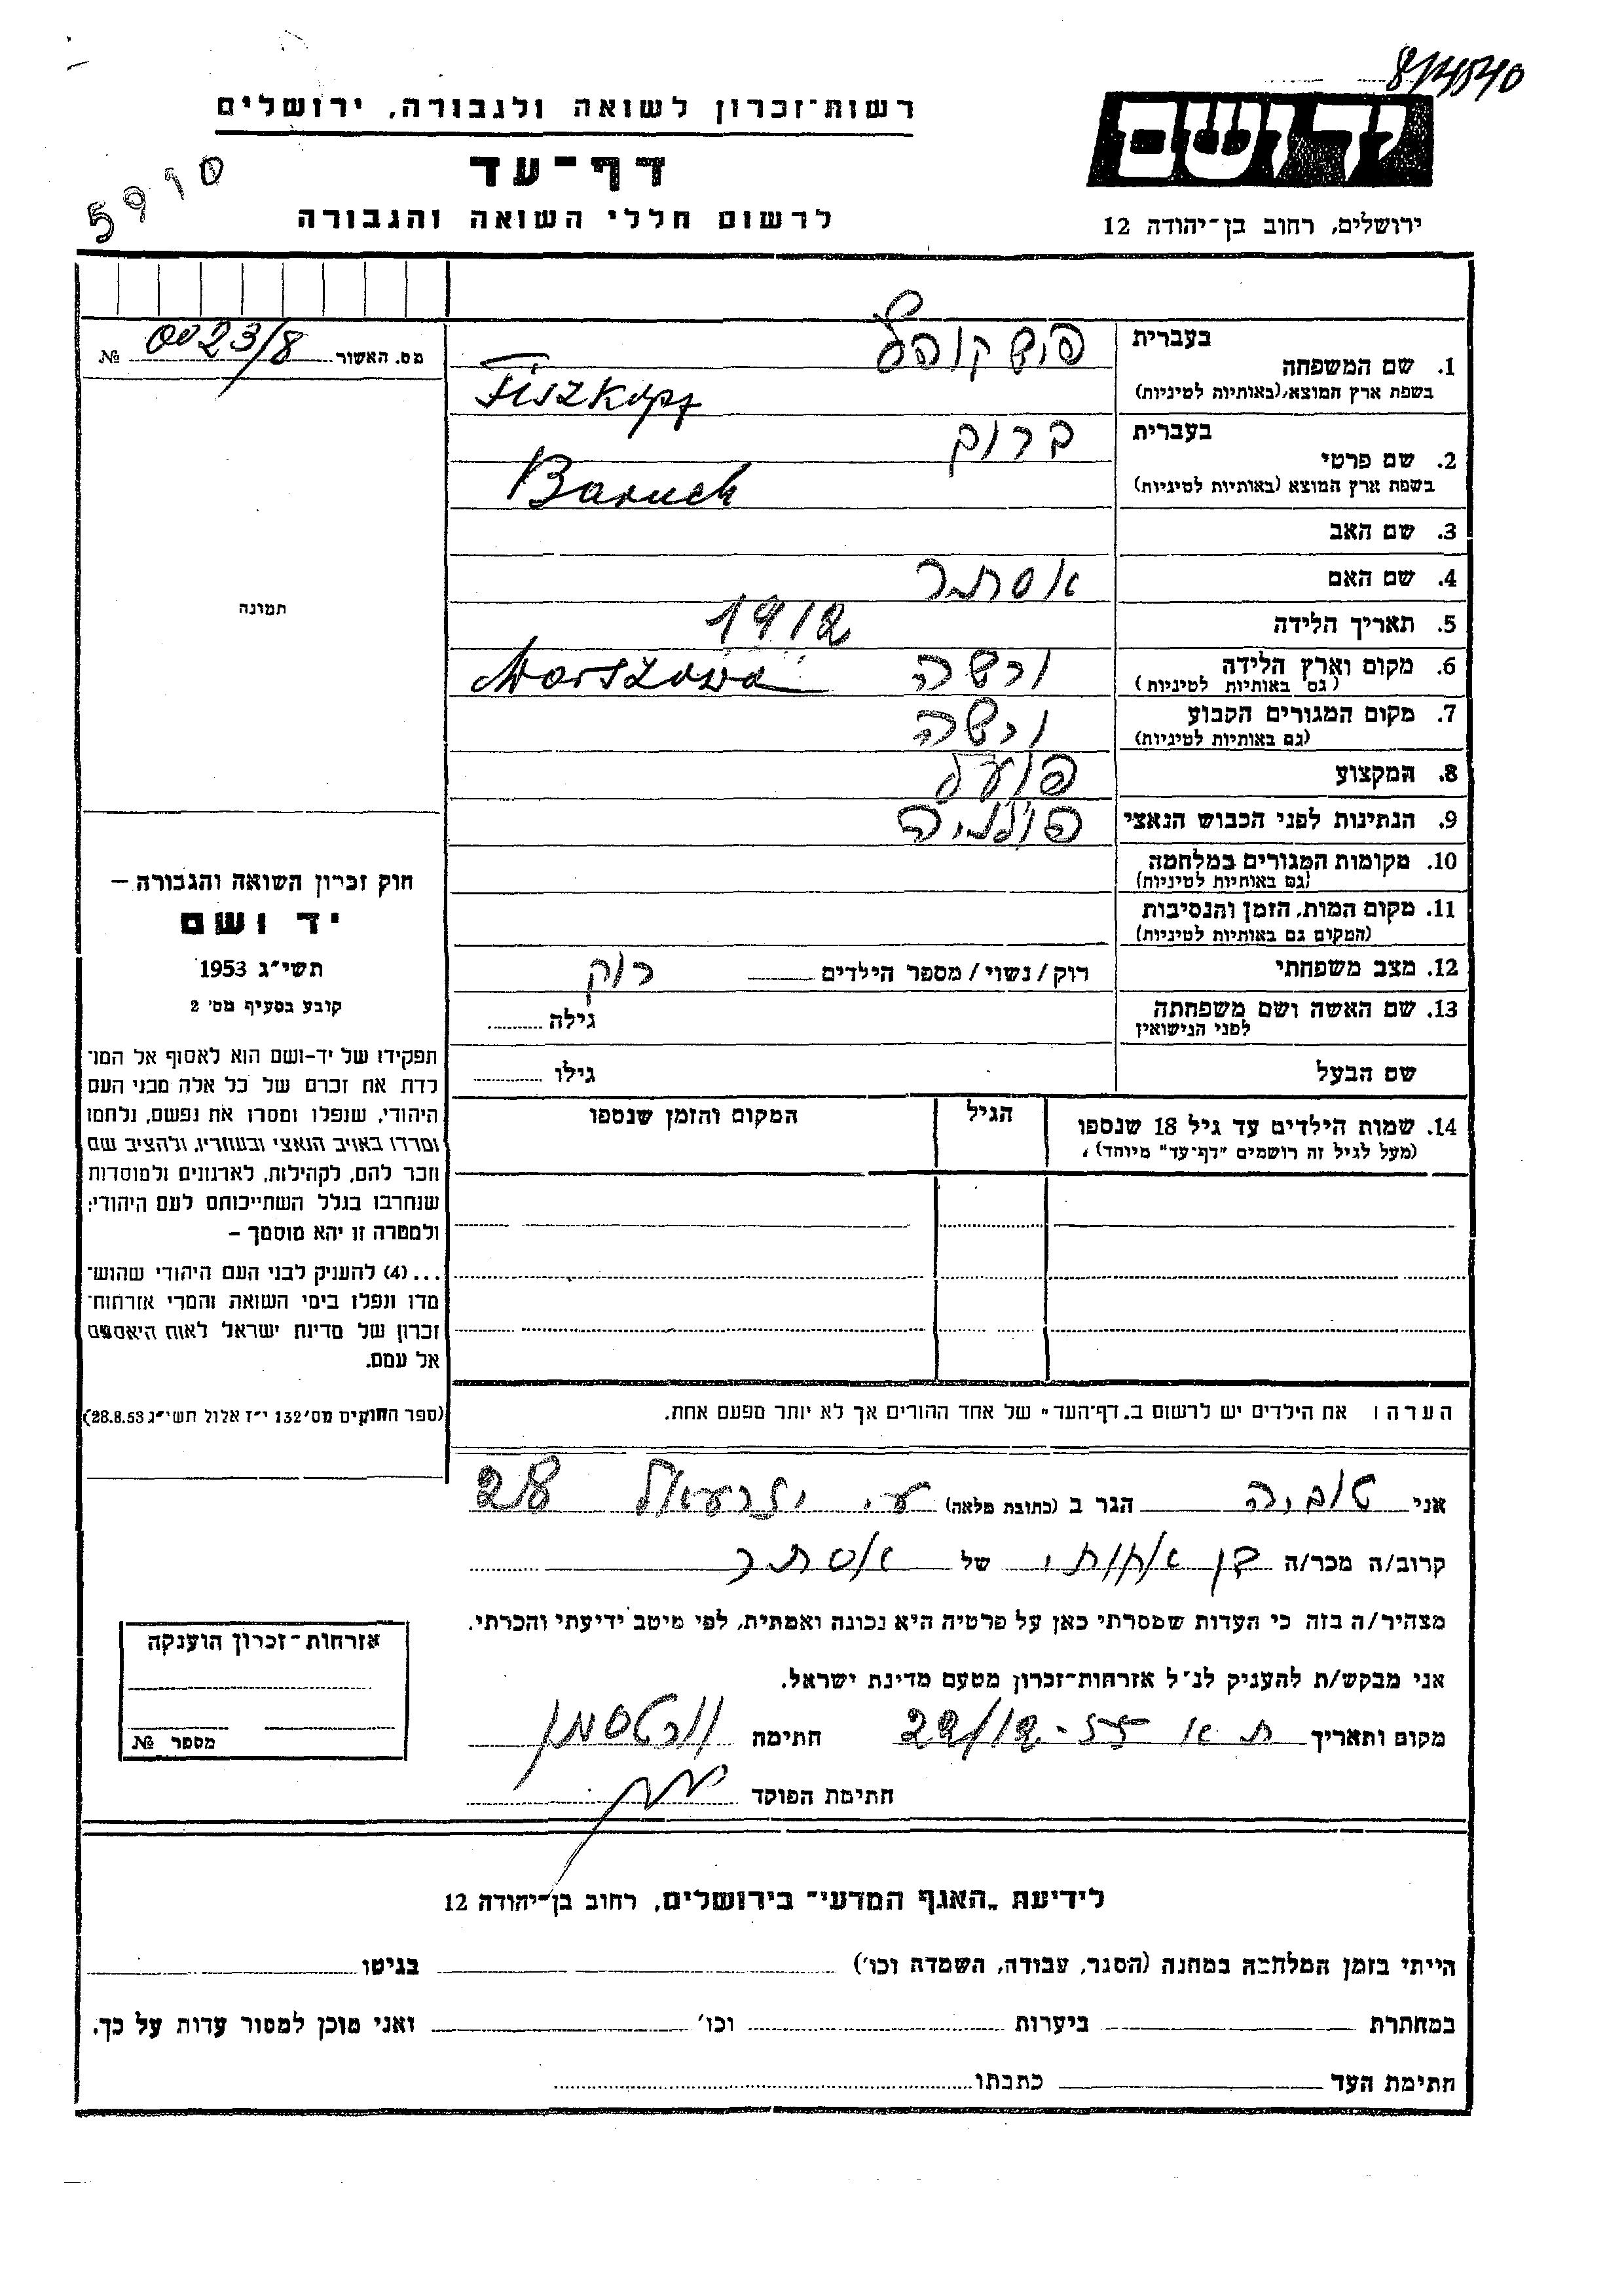 8/4540
רשות־זכרון לשואה ולגבורה, ירושלים
יד ושם
דף־עד
5910
לרשום חללי השואה והגבורה
ירושלים, רחוב בן־יהודה 12
מס. האשור 0023/8 №
תמונה
חוק זכרון השואה והגבורה –
יד ושם
תשי״ג 1953
קובע בסעיף מס׳ 2
תפקידו של יד-ושם הוא לאסוף אל המו־
לדת את זכרם של כל אלה מבני העם
היהודי, שנפלו ומסרו את נפשם, נלחמו
ומרדו באויב הנאצי ובעוזריו, ולהציב שם
וזכר להם, לקהילות, לארגונים ולמוסדות
שנחרבו בגלל השתייכותם לעם היהודי;
ולמטרה זו יהא מוסמך –
...(4) להעניק לבני העם היהודי שהוש־
מדו ונפלו בימי השואה והמרי אזרחות־
זכרון של מדינת ישראל לאות היאספם
אל עמם.
(ספר החוקים מס׳ 132 י״ז אלול תשי״ג 28.8.53)
בעברית
1. שם המשפחה
פישקופף
בשפת ארץ המוצא (באותיות לטיניות) Fiszkopf
בעברית
2. שם פרטי ברוך
בשפת ארץ המוצא (באותיות לטיניות) Baruch
3. שם האב
4. שם האם אסתר
5. תאריך הלידה 1912
6. מקום וארץ הלידה ורשה Warszawa
(גם באותיות לטיניות)
7. מקום המגורים הקבוע ורשה
(גם באותיות לטיניות)
8. המקצוע פועל
9. הנתינות לפני הכבוש הנאצי פולניה
10. מקומות המגורים במלחמה
(גם באותיות לטיניות)
11. מקום המות, הזמן והנסיבות
(המקום גם באותיות לטיניות)
12. מצב משפחתי רוק/נשוי/מספר הילדים רוק
13. שם האשה ושם משפחתה גילה
לפני הנישואין
שם הבעל גילו
14. שמות הילדים עד גיל 18 שנספו הגיל המקום והזמן שנספו
(מעל לגיל זה רושמים ״דף־עד״ מיוחד)
הערה: את הילדים יש לרשום ב„דף־העד״ של אחד ההורים אך לא יותר מפעם אחת.
אני טוביה הגר ב (כתובת מלאה) 28
קרוב/ה מכר/ה בן אחותי של אסתר
מצהיר/ה בזה כי העדות שמסרתי כאן על פרטיה היא נכונה ואמתית, לפי מיטב ידיעתי והכרתי.
אני מבקש/ת להעניק לנ״ל אזרחות־זכרון מטעם מדינת ישראל.
מקום ותאריך ת א 22/12-55 חתימה וורטסמן
חתימת הפוקד
אזרחות־זכרון הוענקה
מספר №
לידיעת „האגף המדעי״ בירושלים, רחוב בן־יהודה 12
הייתי בזמן המלחמה במחנה (הסגר, עבודה, השמדה וכו׳) בגיטו
במחתרת ביערות וכו׳ ואני מוכן למסור עדות על כך.
חתימת העד כתבתו